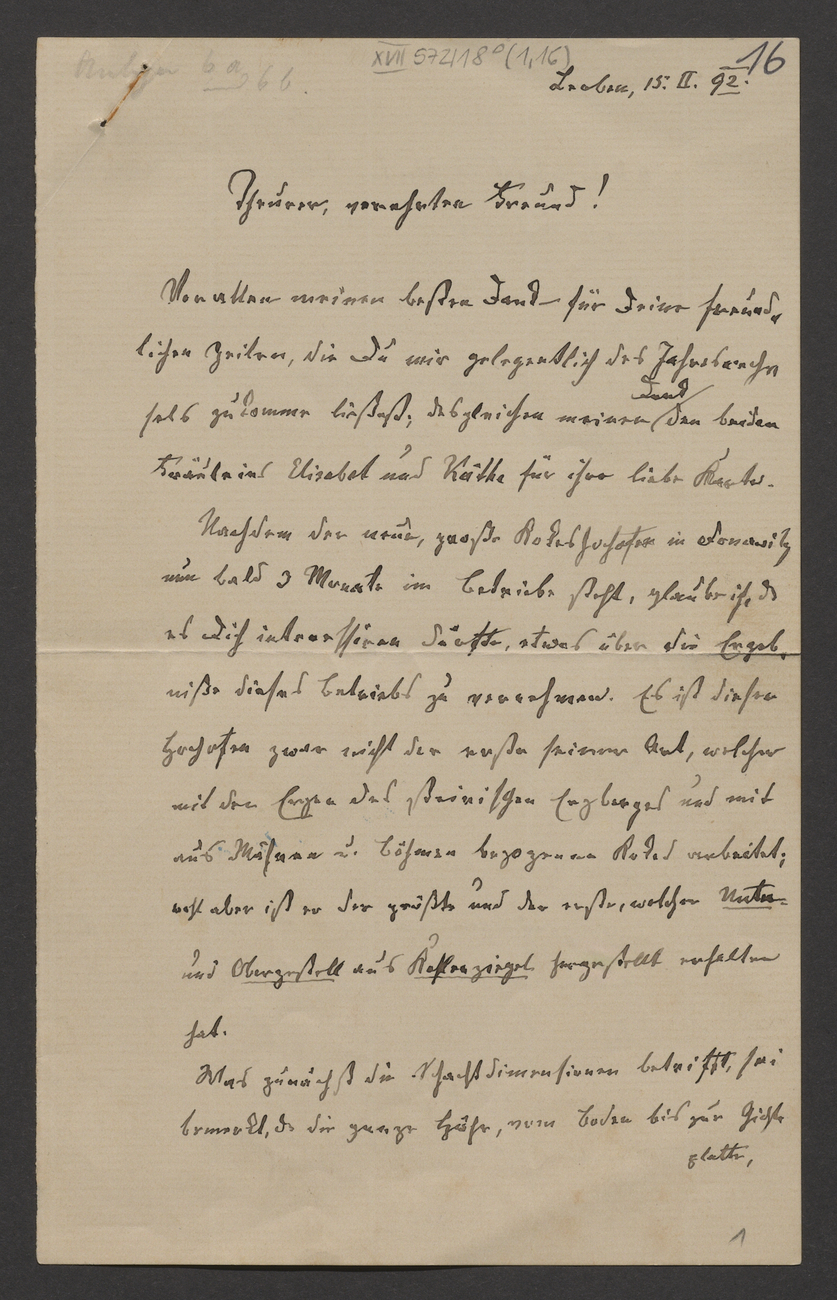 XVII 572/18° (1,16)
16
Leoben, 15. II. 92.
Theurer, verehrter Freund!
Vor allem meinen besten Dank für Deine freund-
lichen Zeilen, die Du mir gelegentlich des Jahreswech-
sels zukommen ließest; desgleichen meinen Dank den beiden
Fräuleins Elisabet und Käthe für ihre liebe Karte.
Nachdem der neue, große Kokeshochofen in Donawitz
nun bald 3 Monate im Betriebe steht, glaube ich, ds
es Dich interessiren dürfte, etwas über die Ergeb-
niße dieses Betriebs zu vernehmen. Es ist dieser
Hochofen zwar nicht der erste seiner Art, welcher
mit den Erzen des steirischen Erzberges und mit
aus Mähren u. Böhmen bezogenen Kokes arbeitet;
wohl aber ist er der größte und der erste, welcher Unter-
und Obergestell aus Kohlenziegel hergestellt erhalten
hat.
Was zunächst die Schachtdimensionen betrifft, sei
bemerkt, ds die ganze Höhe, vom Boden bis zur Gicht-
platte,
1